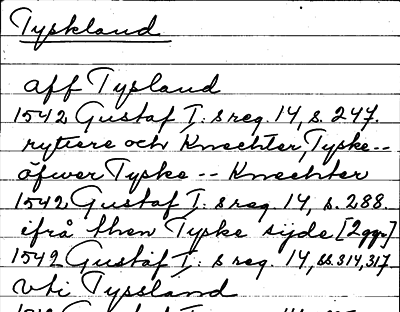 Tyskland
aff Tysland
1542 Gustaf I: s reg. 14, s. 247.
ryttere och Knechter, Tyske--
öfwer Tyske -- Knechter
1542 Gustaf I: s reg 14, s. 288.
ifrå then Tyske sijde [2ggr]
1542 Gustaf I: s reg. 14, ss. 314, 317
vti Tyssland